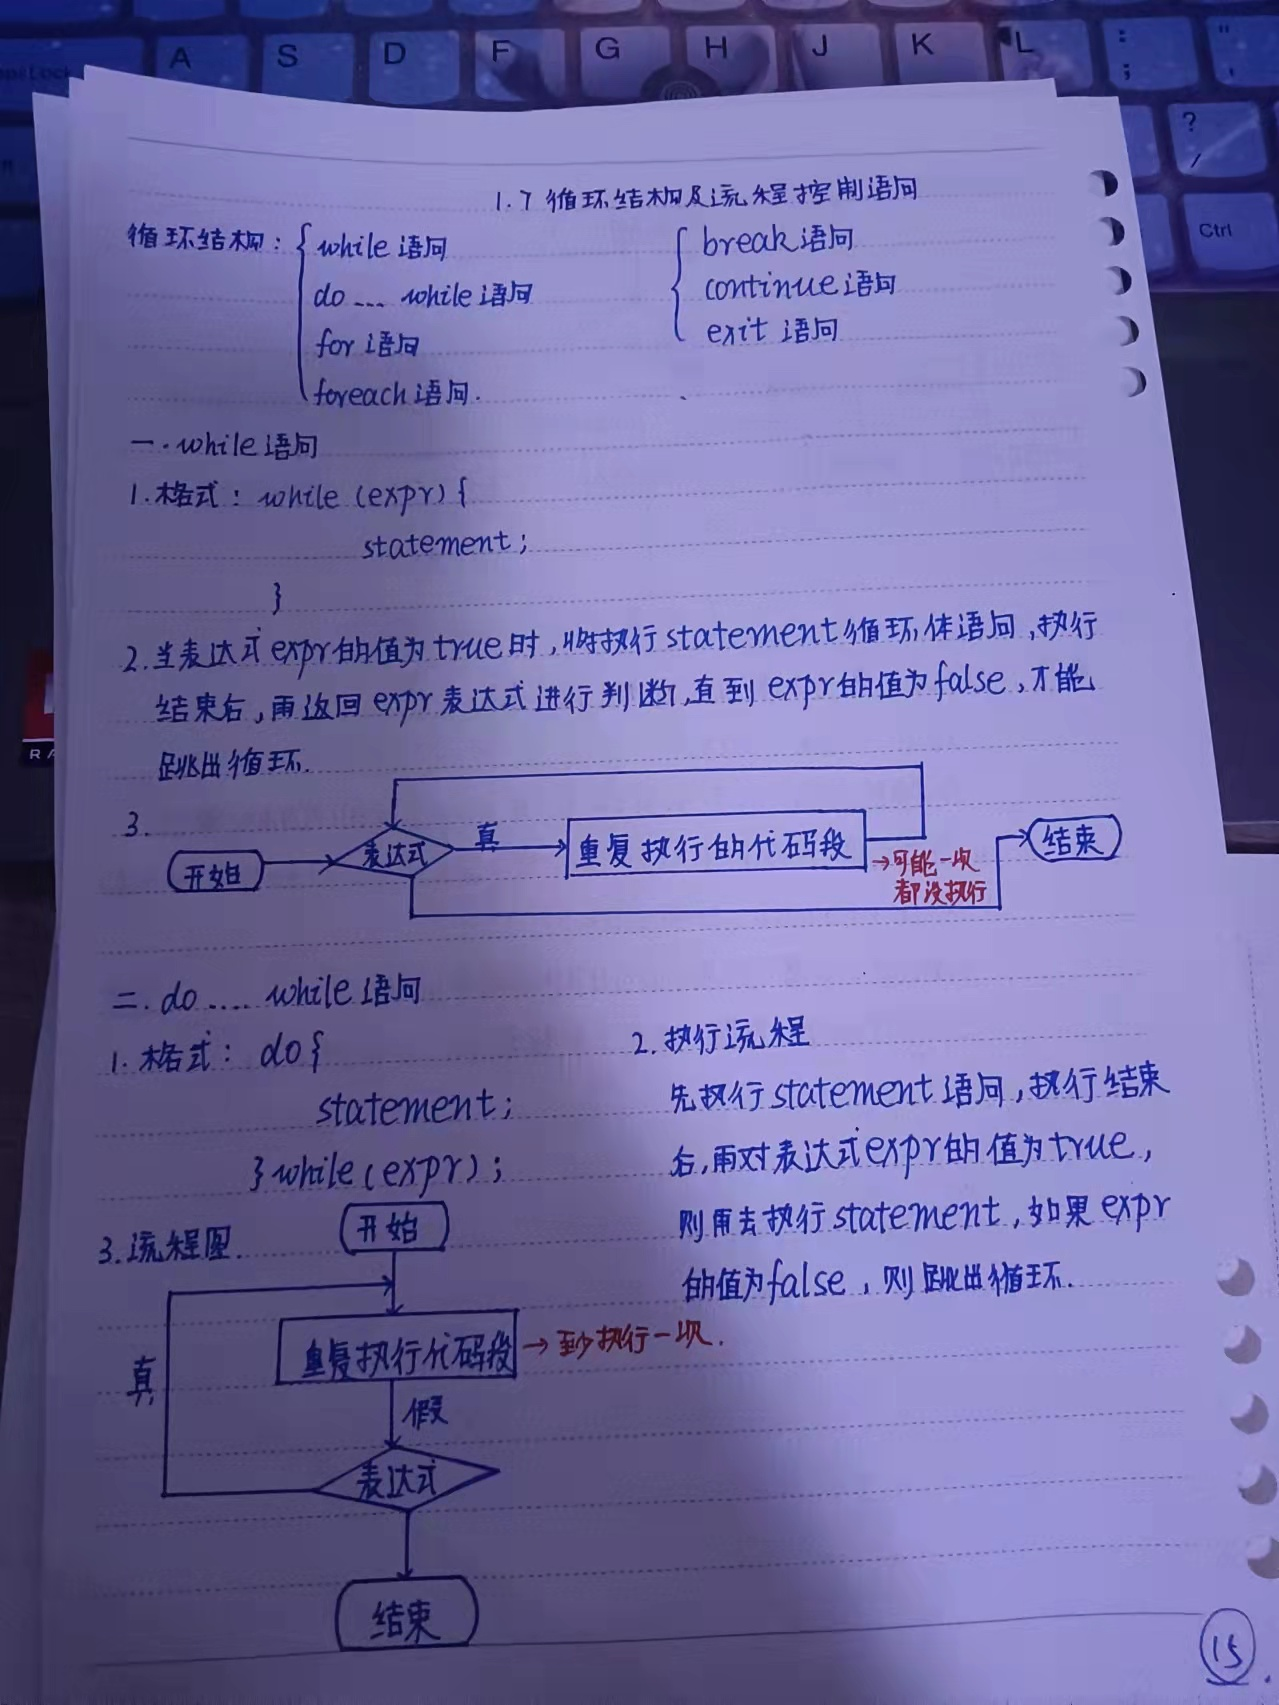 A S D F G H J K L : ;
" '
? /
Ctrl
1.7 循环结构及流程控制语句
循环结构: while 语句
do .... while 语句
for 语句
foreach 语句.
break 语句
continue 语句
exit 语句
一. while 语句
1. 格式: while (expr) {
statement;
}
2. 当表达式 expr 的值为 true 时, 将执行 statement 循环体语句, 执行
结束后, 再返回 expr 表达式进行判断, 直到 expr 的值为 false, 才能
跳出循环.
3.
开始
表达式
真
重复执行的代码段
→可能一次
都没执行
结束
二. do .... while 语句
1. 格式: do {
statement;
} while (expr);
2. 执行流程
先执行 statement 语句, 执行结束
后, 再对表达式 expr 的值为 true,
则再去执行 statement, 如果 expr
的值为 false, 则跳出循环.
3. 流程图.
开始
重复执行代码段
→ 至少执行一次.
真
假
表达式
结束
15